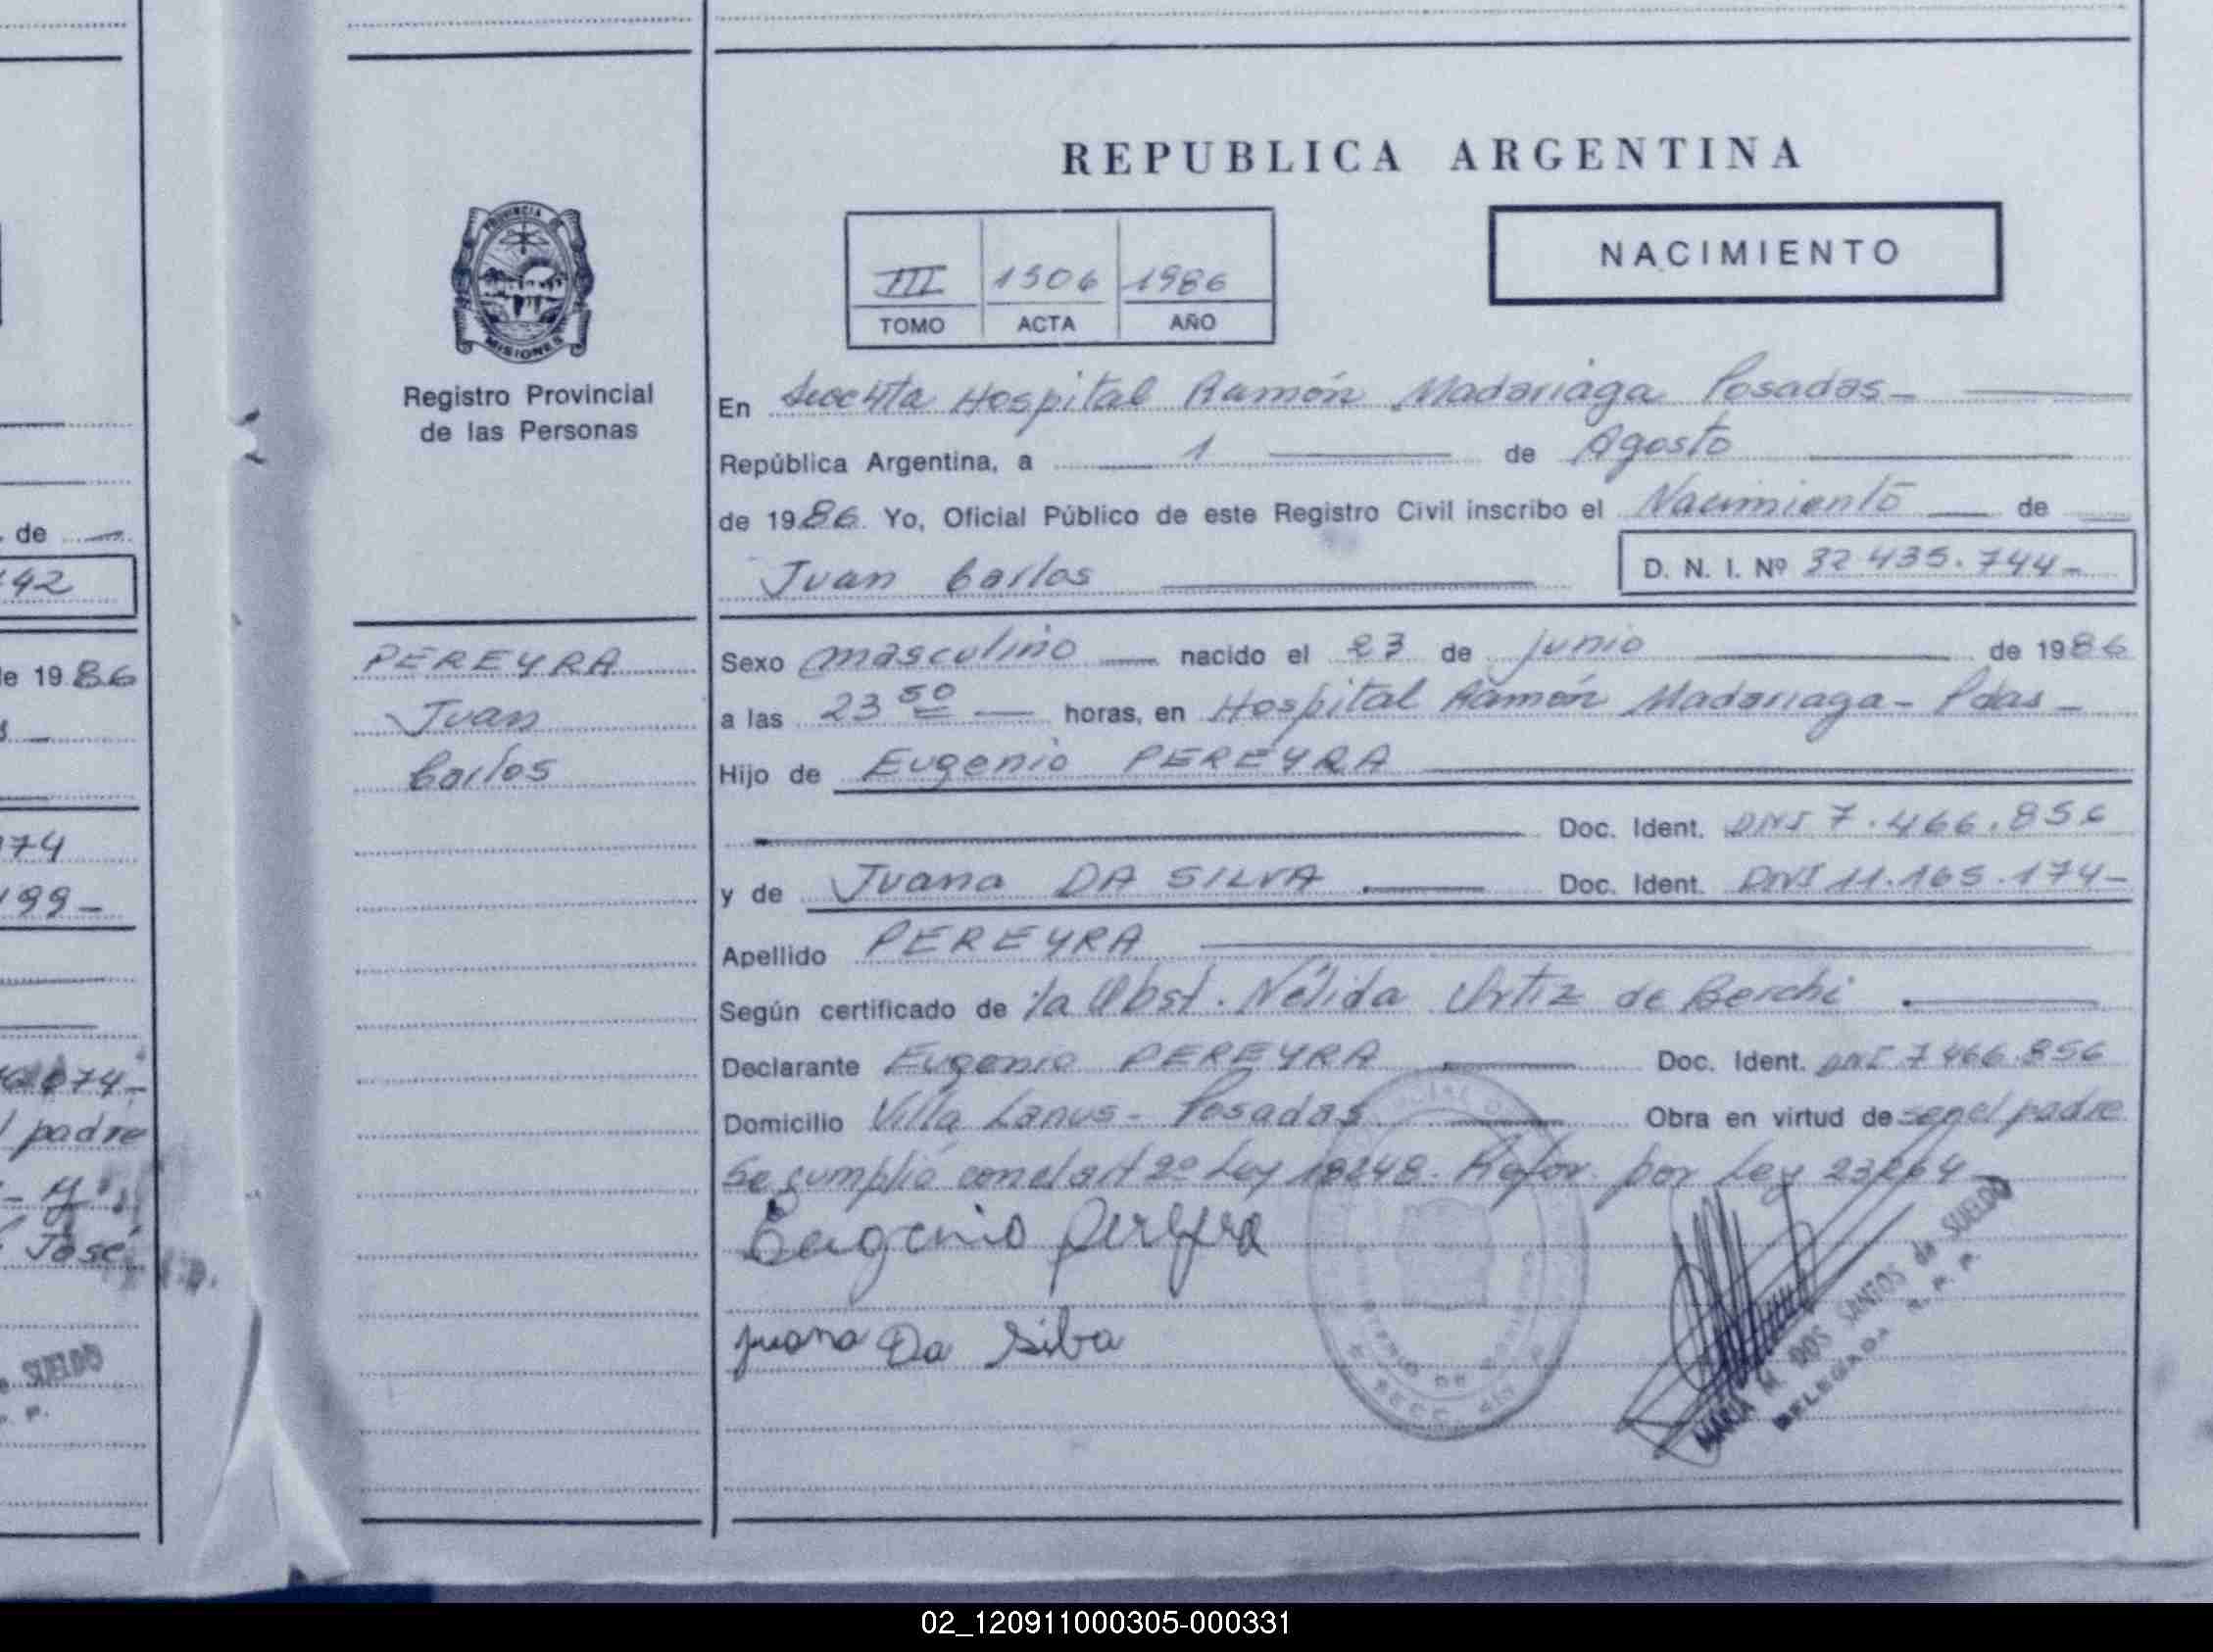 REPUBLICA ARGENTINA
NACIMIENTO
III 1506 1986
TOMO ACTA AÑO
PROVINCIA DE
MISIONES
Registro Provincial
de las Personas
En Hospital Ramón Madariaga Posadas-
República Argentina, a 1 de Agosto
de 1986. Yo, Oficial Público de este Registro Civil inscribo el Nacimiento de
Juan Carlos D. N. I. Nº 32.435.744-
PEREYRA
Juan
Carlos
Sexo masculino nacido el 23 de junio de 1986
a las 23 50 horas, en Hospital Ramón Madariaga- Pdas-
Hijo de Eugenio PEREYRA
Doc. Ident. DNI 7.466.856
y de Juana DA SILVA Doc. Ident. DNI 11.165.174-
Apellido PEREYRA
Según certificado de la Obst. Nélida Ortiz de Berchi
Declarante Eugenio PEREYRA Doc. Ident. DNI 7.466.856
Domicilio Villa Lanus- Posadas Obra en virtud de ser el padre
Se cumplió con el art 2º Ley 18248. Refor. por Ley 23264
Eugenio Pereyra
Juana Da Silba
MARIA M. DOS SANTOS de SUELDO
DELEGADA R. P. P.
de
42
de 1986
74
199-
674-
padre
José
SUELDO
02_120911000305-000331